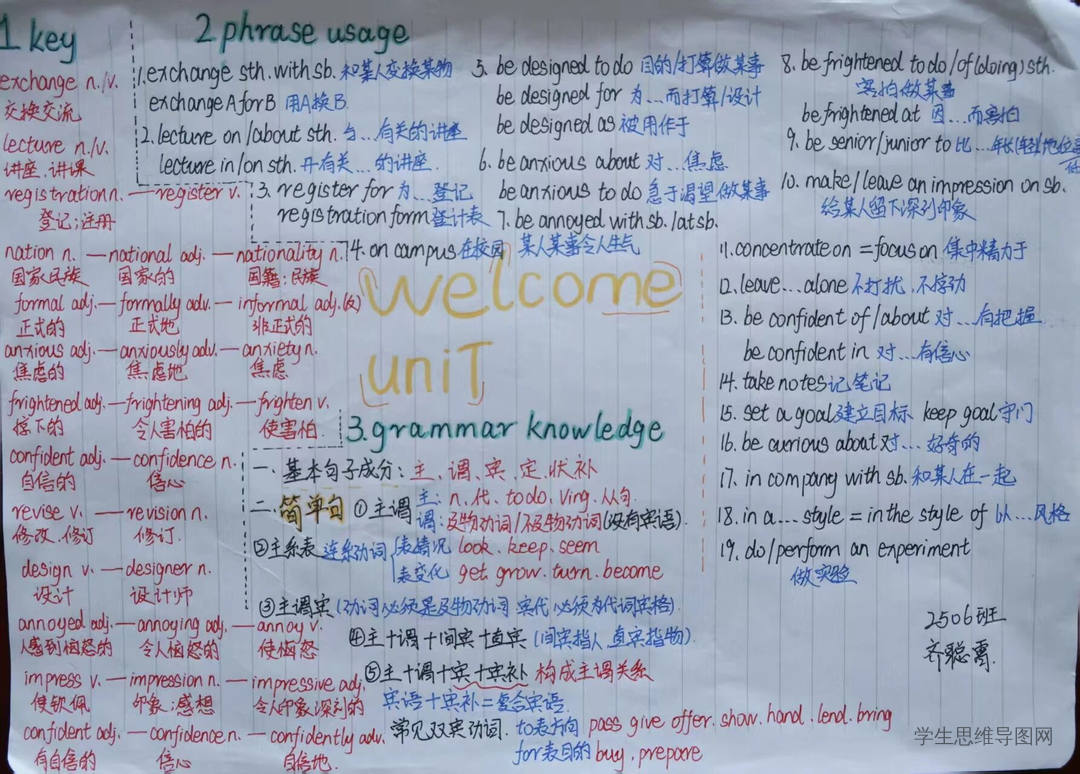 1 key
exchange n./v.
交换交流
lecture n./v.
讲座.讲课
registration n. — register v.
登记;注册
nation n. — national adj. — nationality n.
国家.民族 国家的 国籍:民族
formal adj. — formally adv. — informal adj.(反)
正式的 正式地 非正式的
anxious adj. — anxiously adv. — anxiety n.
焦虑的 焦虑地 焦虑
frightened adj. — frightening adj. — frighten v.
惊下的 令人害怕的 使害怕.
confident adj. — confidence n.
自信的 信心
revise v. — revision n.
修改.修订 修订.
design v. — designer n.
设计 设计师
annoyed adj. — annoying adj. — annoy v.
感到恼怒的 令人恼怒的 使恼怒
impress v. — impression n. — impressive adj.
使钦佩 印象;感想 令人印象深刻的
confident adj. — confidence n. — confidently adv.
有自信的 信心 自信地.
2 phrase usage
1. exchange sth. with sb. 和某人交换某物
exchange A for B 用A换B
2. lecture on /about sth. 与...有关的讲座
lecture in/on sth. 开有关...的讲座.
3. register for 为...登记
registration form 登计表
4. on campus 在校园
5. be designed to do 目的/打算做某事
be designed for 为...而打算/设计
be designed as 被用作于
6. be anxious about 对...焦虑
be anxious to do 急于渴望做某事
7. be annoyed with sb. /at sb.
某人某事令人生气
8. be frightened to do /of (doing) sth.
害怕做某事
be frightened at 因...而害怕
9. be senior/junior to 比...年长(轻)地位高
低
10. make/leave an impression on sb.
给某人留下深刻印象
11. concentrate on = focus on 集中精力于
12. leave...alone 不打扰.不挪动
13. be confident of /about 对...有把握
be confident in 对...有信心
14. take notes 记笔记
15. set a goal 建立目标 keep goal 守门
16. be curious about 对...好奇的
17. in company with sb. 和某人在一起
18. in a ... style = in the style of 以...风格
19. do/perform an experiment
做实验
welcome
uniT
3. grammar knowledge
一.基本句子成分: 主.谓.宾.定.状补
二.简单句 ①主谓 主: n.代.to do.Ving.从句.
谓: 及物动词/不及物动词(没有宾语).
②主系表 连系动词 表情况 look.keep.seem
表变化 get.grow.turn.become
③主谓宾 (动词必须是及物动词 宾代必须为代词宾格).
④主+谓+间宾+直宾 (间宾指人 直宾指物).
⑤主+谓+宾+宾补 构成主谓关系
宾语+宾补=复合宾语.
常见双宾动词. to表方向 pass give offer.show.hand.lend.bring
for表目的 buy.prepare
2506班
齐聪霭.
学生思维导图网